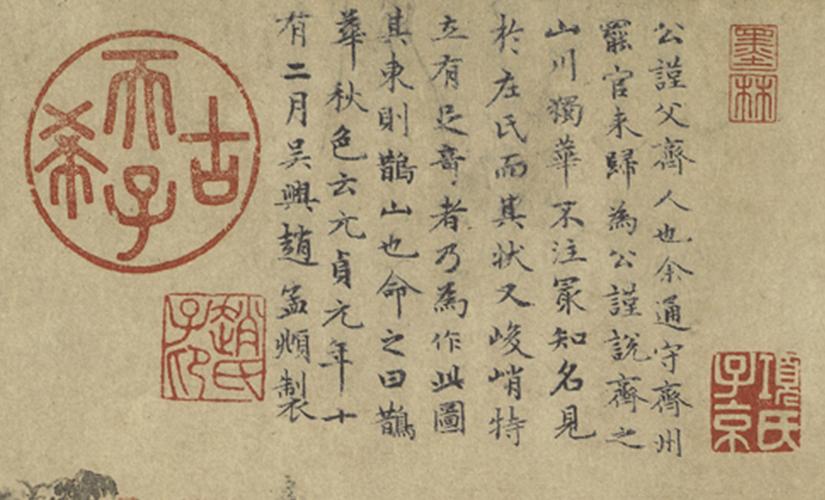 墨林
項氏子京
公謹父齊人也余通守齊州
罷官来歸為公謹說齊之
山川獨華不注㝡知名見
於左氏而其状又峻峭特
立有足奇者乃為作此圖
其東則鵲山也命之曰鵲
華秋色云元貞元年十
有二月吳興趙孟頫製
古希天子
趙氏子印